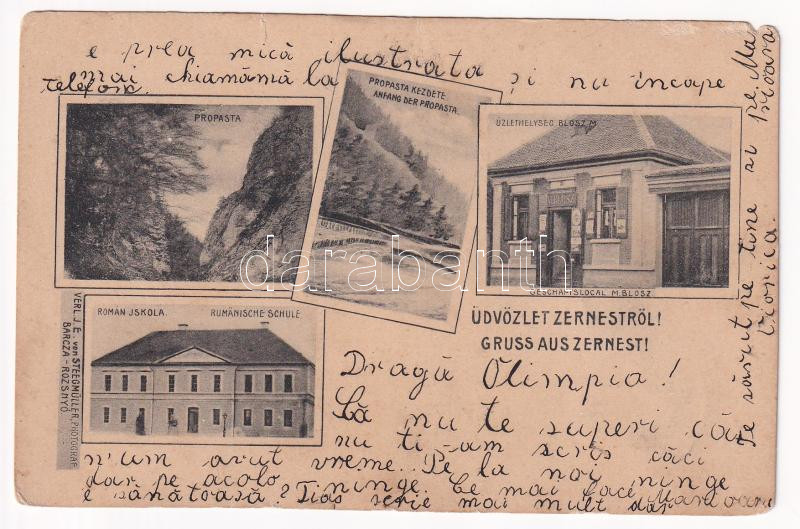 e prea mică ilustrata
mai chiamămă la și nu incape
telefon.
PROPASTA
PROPASTA KEZDETE.
ANFANG DER PROPASTA.
ÜZLETHELYSÉG BLOSZ M.
GESCHÄFTSLOCAL M. BLOSZ
ROMÁN JSKOLA. RUMÄNISCHE SCHULE.
VERL. J. E. von STEEGMÜLLER, PHOTOGRAF
BARCZA-ROZSNYÓ
ÜDVÖZLET ZERNESTRÖL!
GRUSS AUS ZERNEST!
darabanth
Dragă Olimpia!
Să nu te superi că
nu ti-am scris căci
n'um avut vreme. Pe la noi ninge
dar pe acolo ninge. Ce mai face
e sănătoasă? Tias scrie mai mult dar
Te sărut pe tine si pe